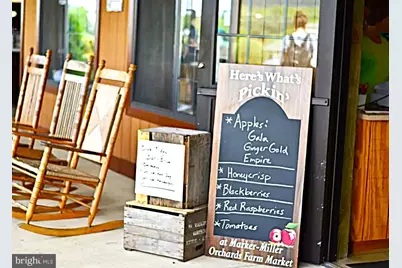 Here's What's
Pickin'
* Apples:
Gala
Ginger Gold
Empire
* Honeycrisp
* Blackberries
* Red Raspberries
* Tomatoes
at Marker-Miller
Orchards Farm Market
bright
MLS